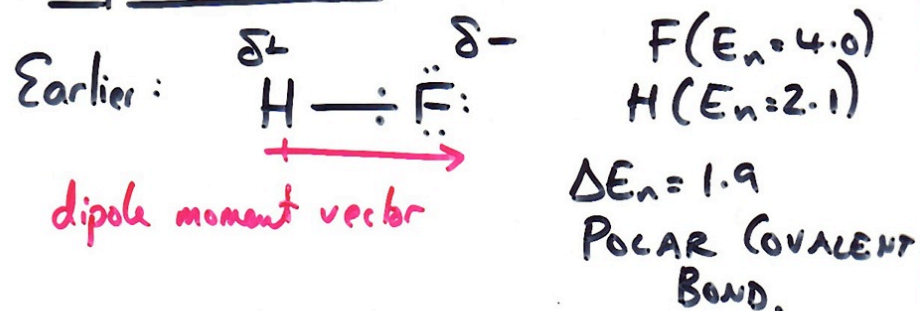 Earlier:
δ+ δ-
H — F
dipole moment vector
F(En=4.0)
H(En=2.1)
ΔEn=1.9
POLAR COVALENT
BOND.